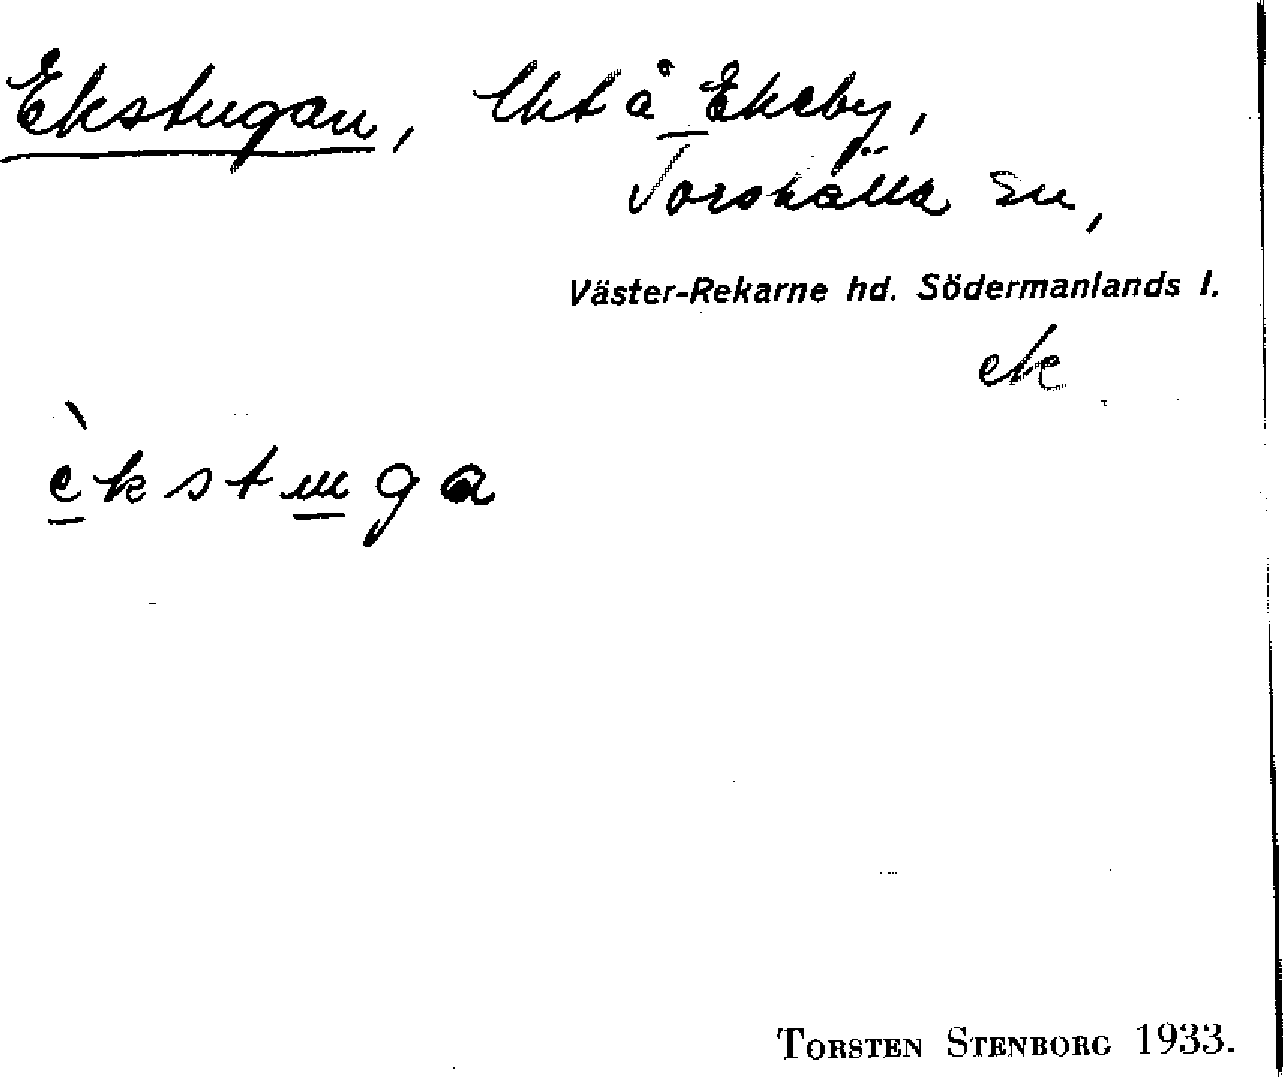 Ekstugan, lht å Ekeby,
Torshälla sn,
Väster-Rekarne hd. Södermanlands l.
ek
èkstuga
TORSTEN STENBORG 1933.